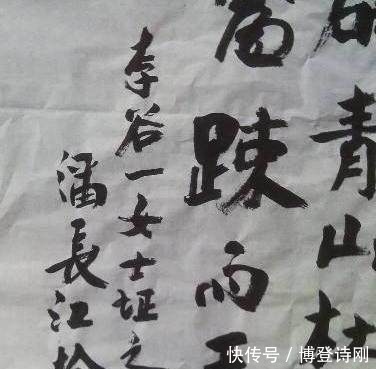 青山
踈而
李谷一女士址之
潘長江
快传号/博登诗刚